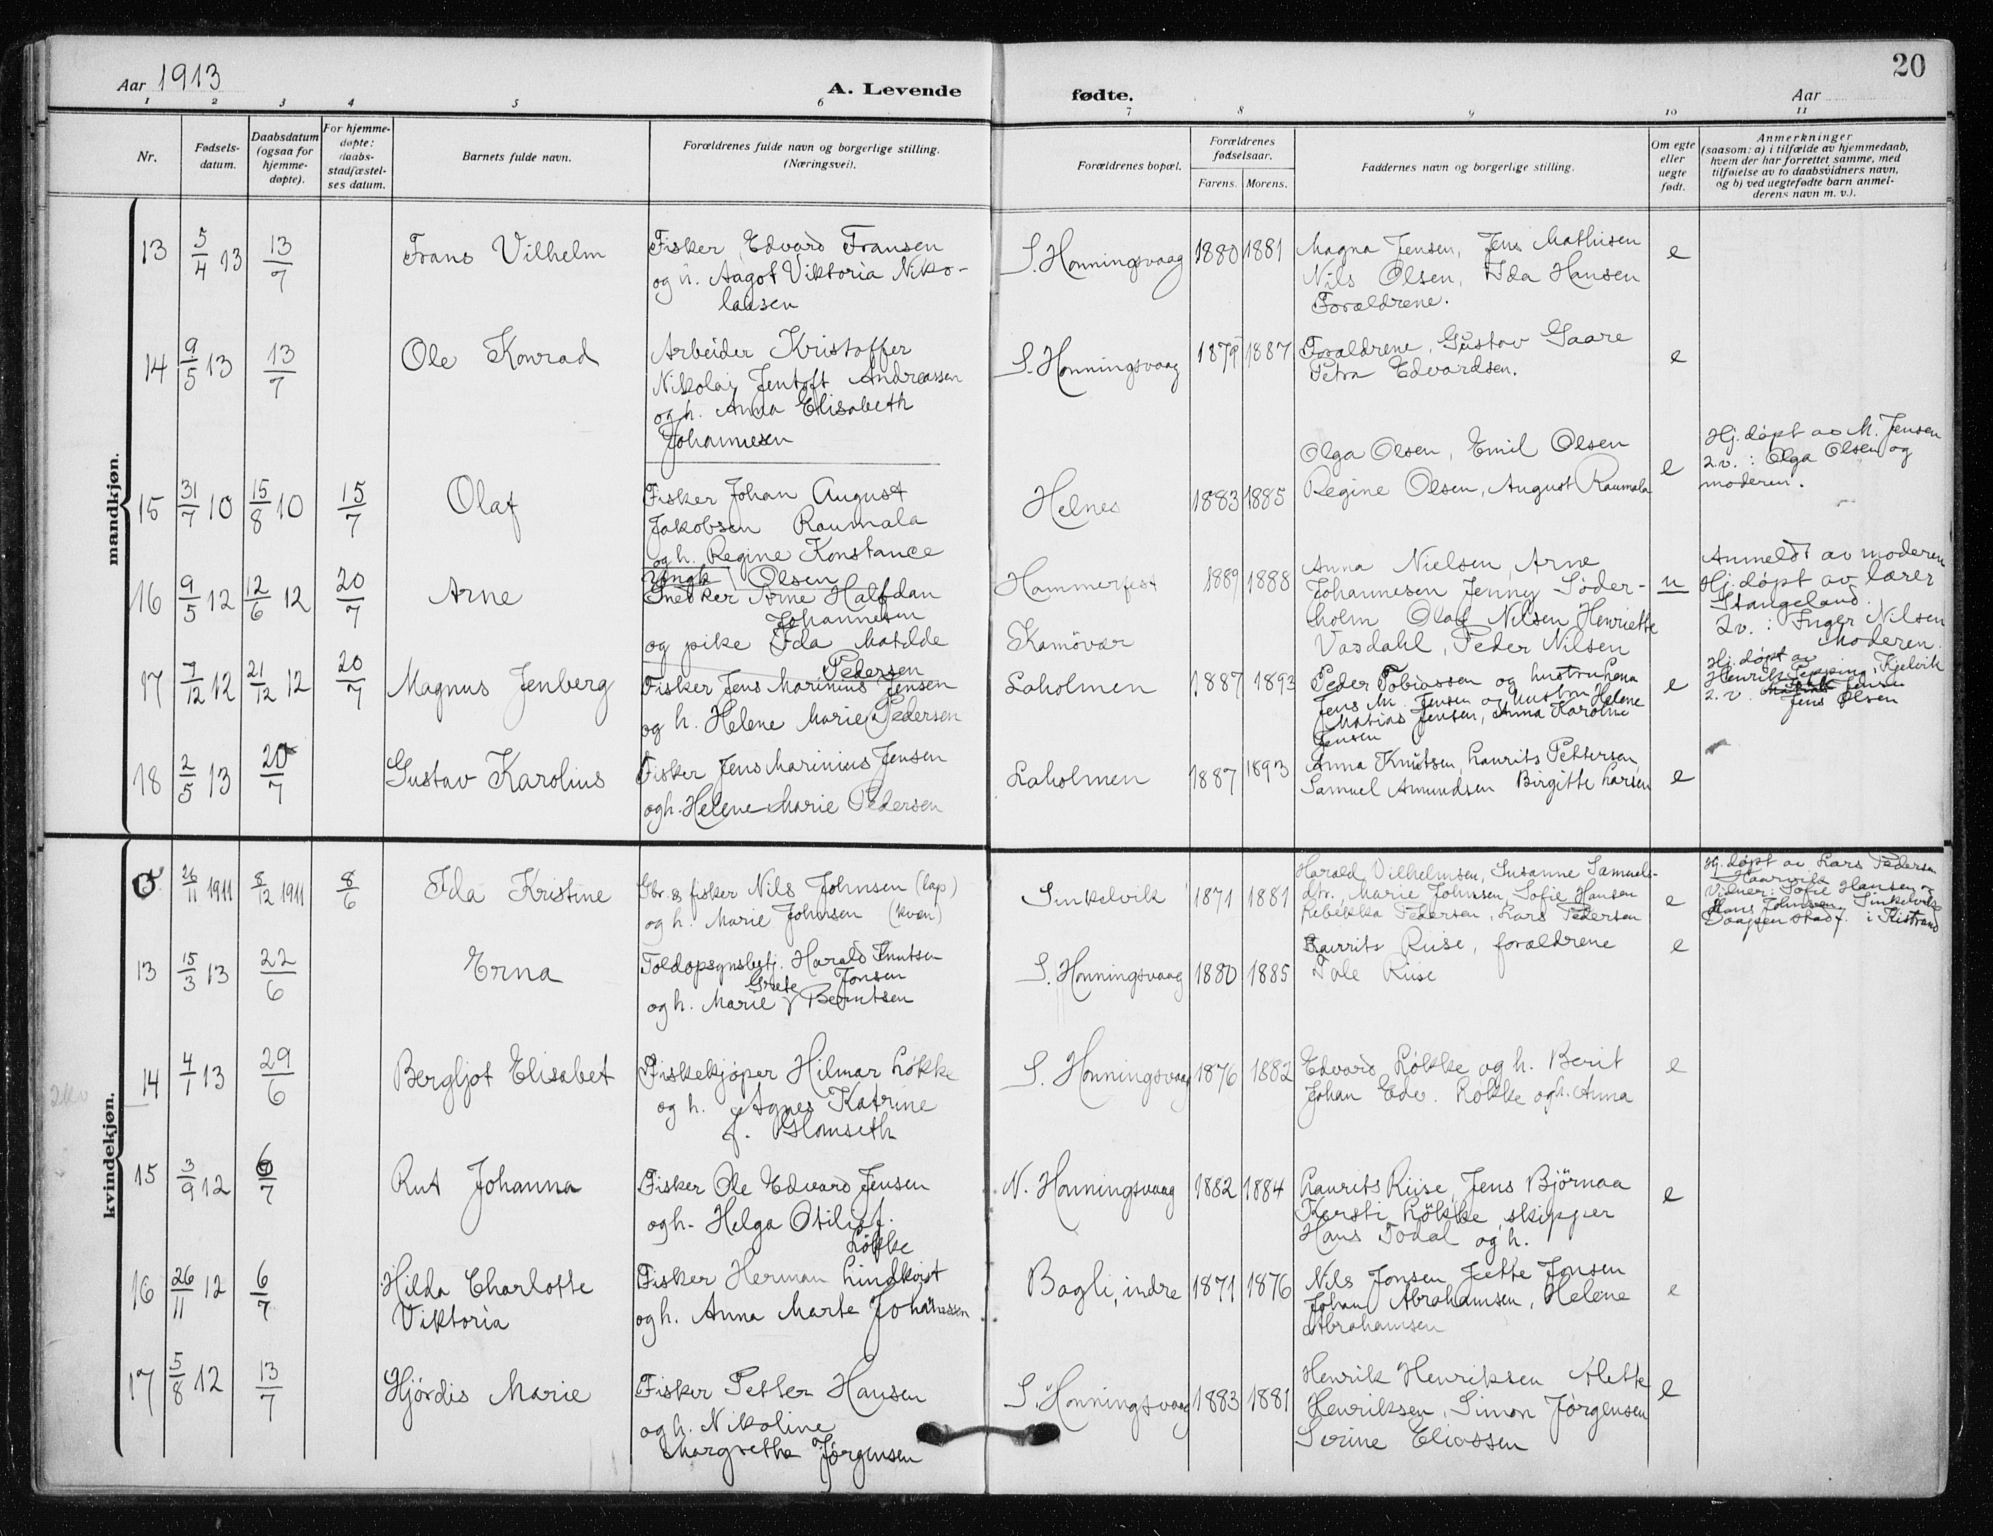 Aar 1913
A. Levende
fødte.
Aar
20
1 2 3 4 5 6 7 8 9 10 11
Nr.
Fødsels-
datum.
Daabsdatum
(ogsaa for
hjemme-
døpte).
For hjemme-
døpte:
daabs-
stadfæstel-
ses datum.
Barnets fulde navn.
Forældrenes fulde navn og borgerlige stilling.
(Næringsvei).
Forældrenes bopæl.
Forældrenes
fødselsaar.
Farens. Morens.
Faddernes navn og borgerlige stilling.
Om egte
eller
uegte
født.
Anmerkninger
(saasom: a) i tilfælde av hjemmedaab,
hvem der har forrettet samme, med
tilføielse av to daabsvidners navn,
og b) ved uegtefødte barn anmel-
derens navn m. v.).
mandkjøn.
13 5/4 13 13/7 Frans Vilhelm
Fisker Edvard Fransen
og h. Aagot Viktoria Niko-
laisen
S. Honningsvaag 1880 1881
Magna Jensen, Jens Mathisen
Nils Olsen, Ida Hansen
Forældrene.
e
14 9/5 13 13/7 Ole Konrad
Arbeider Kristoffer
Nikolai Jentoft Andreassen
og h. Anna Elisabeth
Johannesen
S. Honningsvaag 1879 1887
Forældrene, Gustav Gaare
Petra Edvardsen.
e
15 31/7 10 15/8 10 15/7 Olaf
Fisker Johan August
Jakobsen Raumala
og h. Regine Konstance
Olsen
Helnes 1883 1885
Olga Olsen, Emil Olsen
Regine Olsen, August Raumala
e
Hj. døpt av M. Jensen
2.v.: Olga Olsen og
moderen.
16 9/5 12 12/6 12 20/7 Arne
Ungk.
Snekker Arne Halfdan
Johannesen
og pike Ida Matilde
Pedersen
Hammerfest
Kamøvær
1889 1888
Anna Nielsen, Arne
Johannesen Jenny Søder-
holm Olaf Nilsen Henriette
Vasdahl, Peder Nilsen
u
Anmeldt av moderen
Hj. døpt av lærer
Stangeland.
2v.: Inger Nilsen
Moderen.
17 7/12 12 21/12 12 20/7 Magnus Jenberg
Fisker Jens Marinius Jensen
og h. Helene Marie Pedersen
Laholmen 1887 1893
Peder Tobiassen og hustru Lena
Jens M. Jensen og hustru Helene
Matias Jensen, Anna Karoline
Jensen
e
Hj. døpt av
Henrik Kjelvik
2. v.
Jens Olsen
18 2/5 13 20/7 Gustav Karolius
Fisker Jens Marinius Jensen
og h. Helene Marie Pedersen
Laholmen 1887 1893
Anna Knutsen, Laurits Pettersen,
Samuel Amundsen Birgitte Larsen
e
kvindekjøn.
26/11 1911 8/12 1911 8/6 Ida Kristine
Gbr. & fisker Nils Johnsen (lap)
og h. Marie Johnsen (kvæn)
Sinkelvik 1871 1881
Harald Vilhelmsen, Susanne Samuels-
dtr., Marie Johnsen, Sofie Hansen
Rebekka Pedersen, Lars Pedersen
e
Hj. døpt av Lars Pedersen
Vidner: Sofie Hansen og
Hans Johnsen Sinkelvik
Daapen stadf. i Kistrand
13 15/3 13 22/6 Erna
Toldopsynsbetj. Harald Knutsen
Jonsen
og h. Marie Grete Berntsen
S. Honningsvaag 1880 1885
Laurits Riise, forældrene
Tale Riise
e
14 4/1 13 29/6 Bergljot Elisabet
Fiskekjøper Hilmar Løkke
og h. Agnes Katrine
f. Glomseth
S. Honningsvaag 1876 1882
Edvard Løkke og h. Berit
Johan Edv. Løkke og h. Anna
e
15 3/9 12 6/7 Rut Johanna
Fisker Ole Edvard Jensen
og h. Helga Otilie f.
Løkke
N. Honningsvaag 1882 1884
Laurits Riise, Jens Bjørnaa
Kersti Løkke, skipper
Hans Todal og h.
e
16 26/11 12 6/7 Hilda Charlotte
Viktoria
Fisker Herman Lindkvist
og h. Anna Marte Johannessen
Bagli, indre 1871 1876
Nils Jonsen Jette Jonsen
Johan Abrahamsen, Helene
Abrahamsen
e
17 5/8 12 13/7 Hjørdis Marie
Fisker Petter Hansen
og h. Nikoline
Margrethe Jørgensen
S. Honningsvaag 1883 1881
Henrik Henriksen Alette
Henriksen, Simon Jørgensen
Serine Eliassen
e